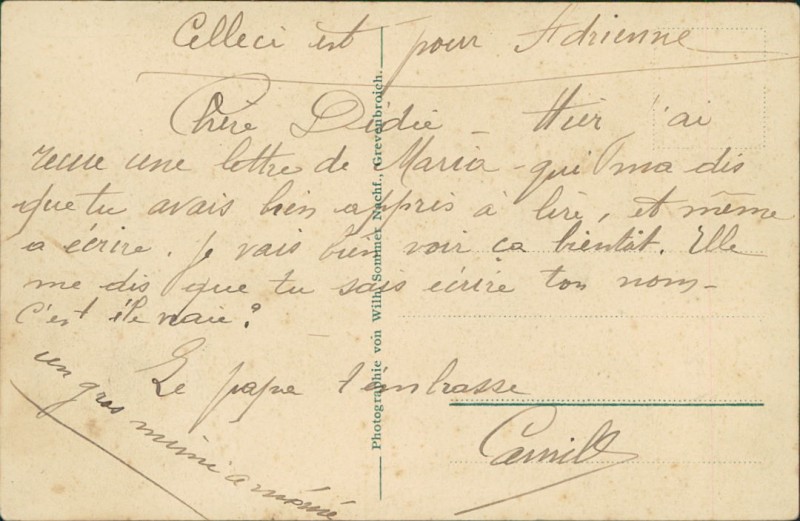 Celleci est pour Adrienne
Chère Didie - Hier j'ai
recue une lettre de Maria - qui ma dis
que tu avais bien appris à lire, et même
a écrire. je vais bien voir ça bientôt. Elle
me dis que tu sais écrire ton nom -
C'est ile vraie ?
Le papa t'embrasse
Camill
un gros mimi a mémé
Photographie von Wilh. Sommer Nachf., Grevenbroich.